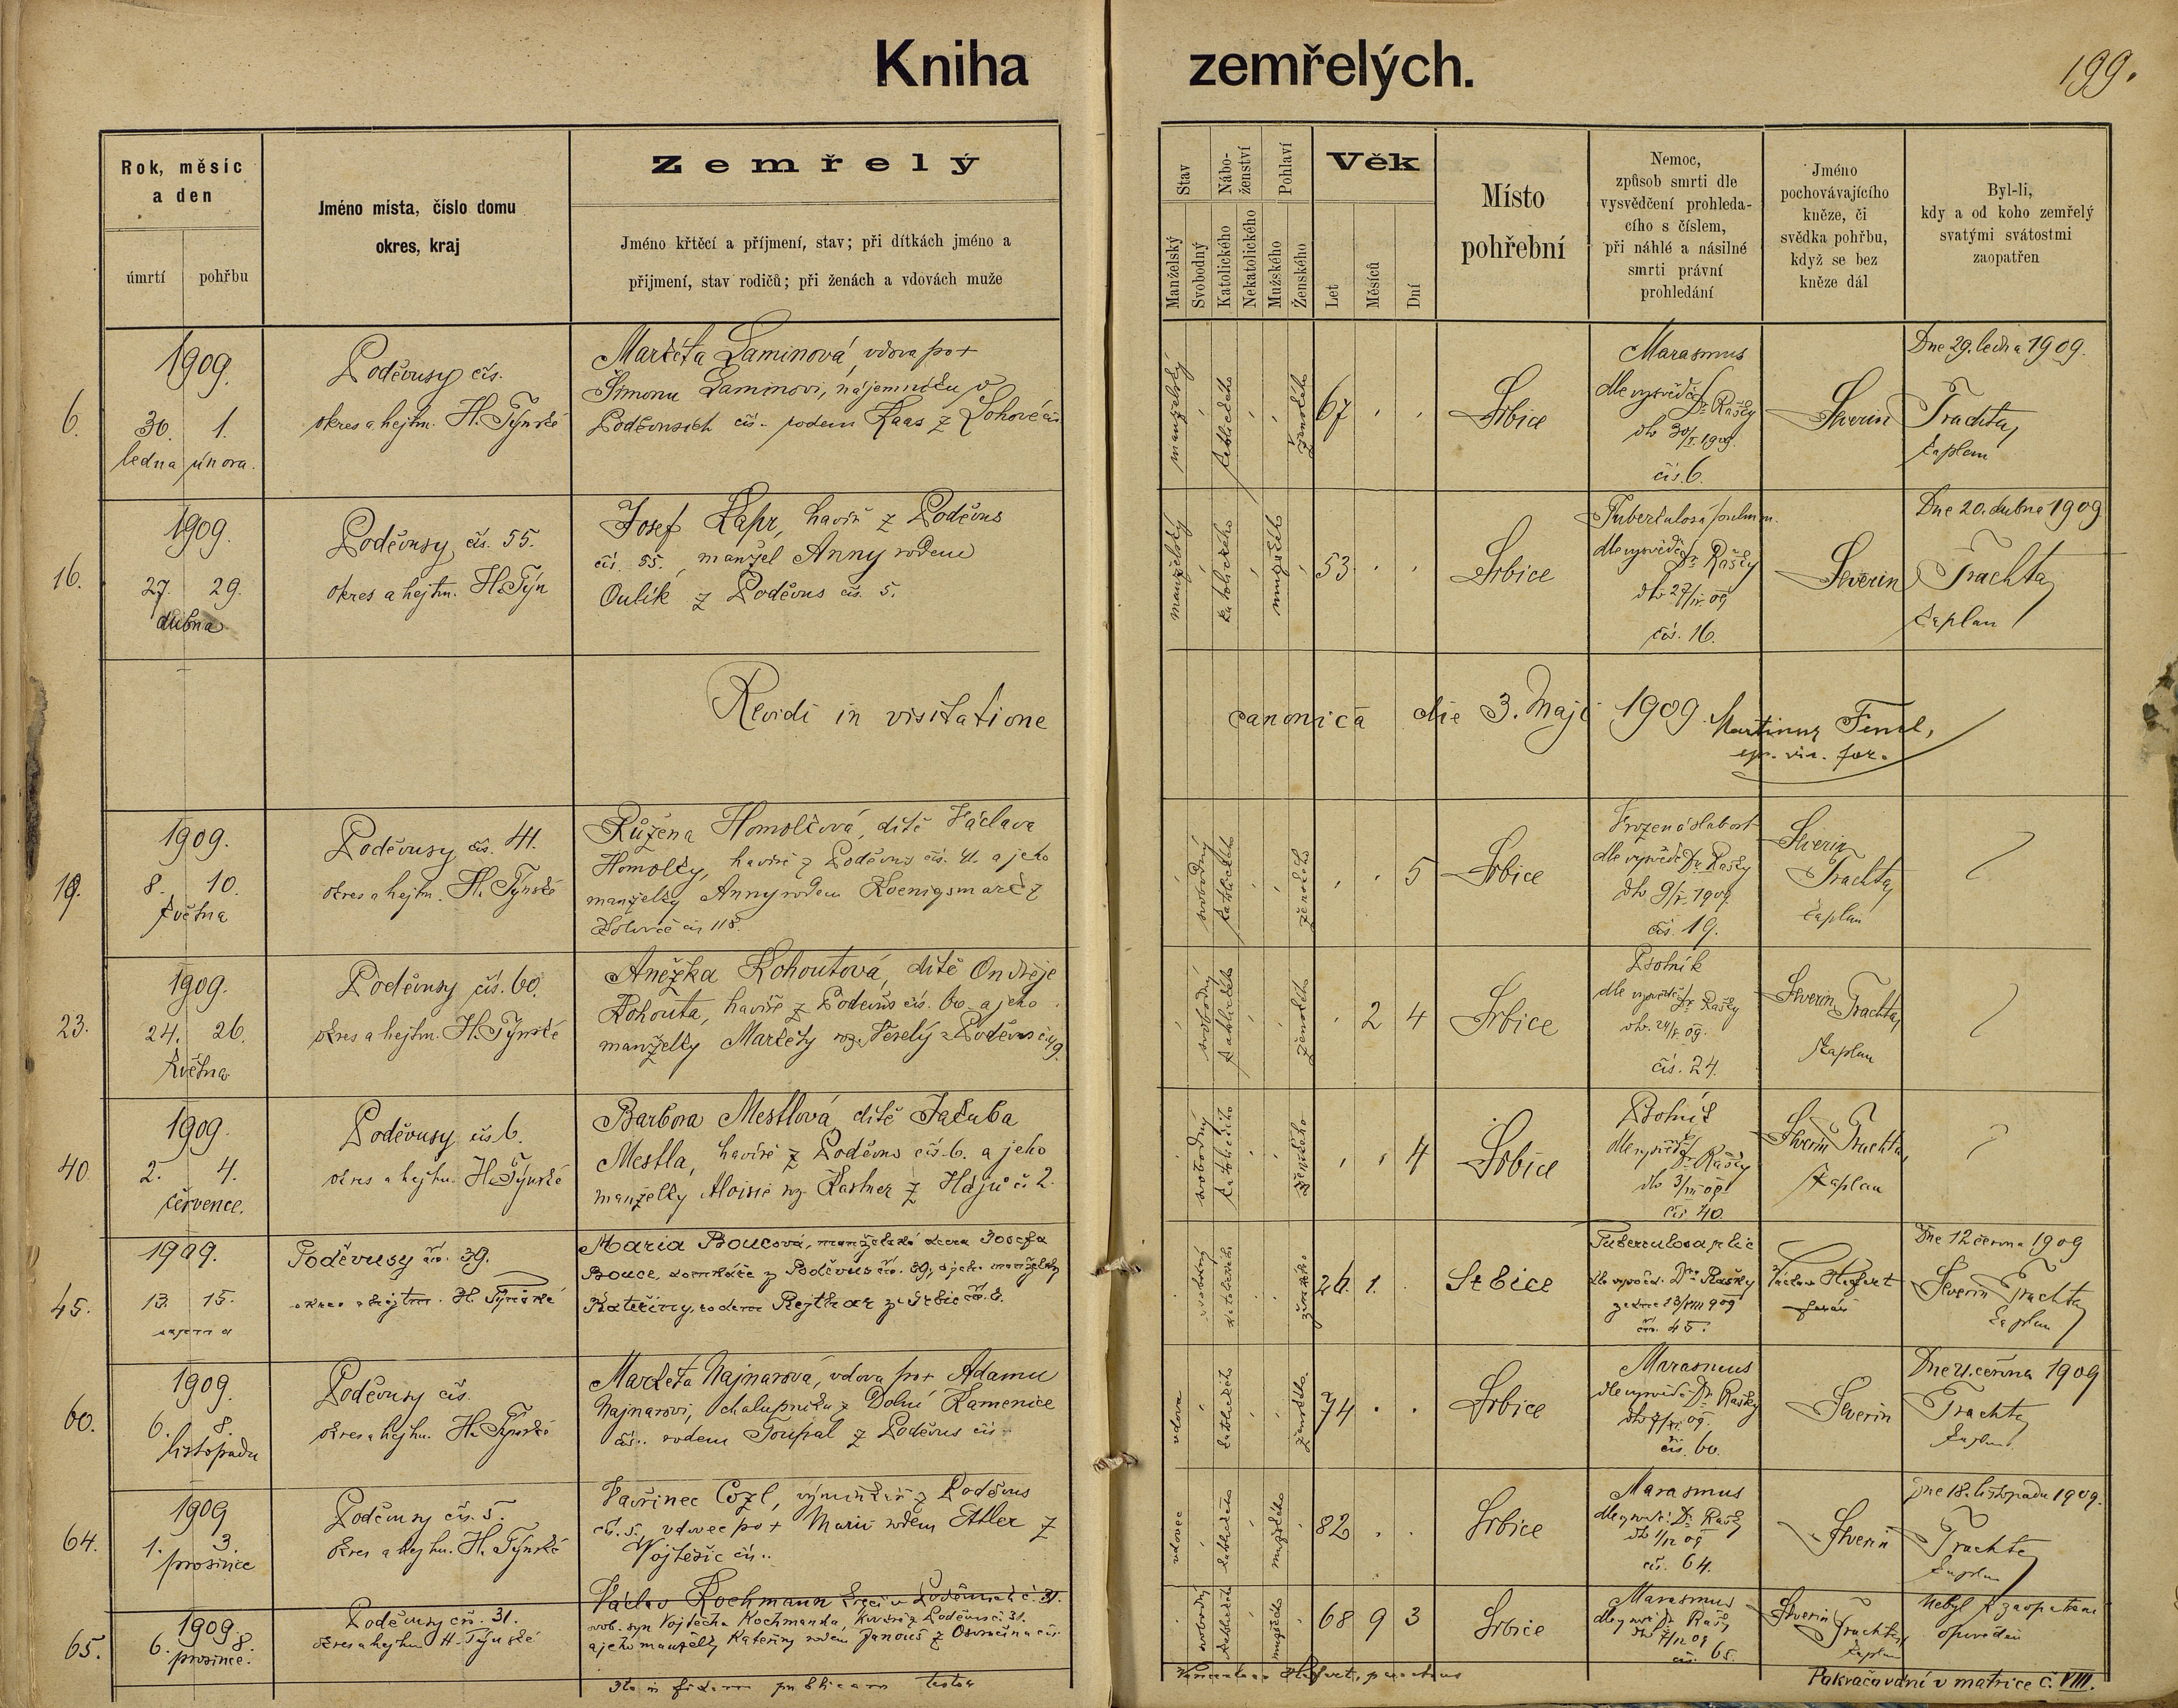 Kniha zemřelých.
199.
Rok, měsíc a den
úmrtí
pohřbu
Jméno místa, číslo domu
okres, kraj
Zemřelý
Jméno křtěcí a příjmení, stav; při dítkách jméno a
přijmení, stav rodičů; při ženách a vdovách muže
Stav
Manželský
Svobodný
Nábo-
ženství
Katolického
Nekatolického
Pohlaví
Mužského
Ženského
Věk
Let
Měsíců
Dní
Místo
pohřební
Nemoc,
způsob smrti dle
vysvědčení prohleda-
cího s číslem,
při náhlé a násilné
smrti právní
prohledání
Jméno
pochovávajícího
kněze, či
svědka pohřbu,
když se bez
kněze dál
Byl-li,
kdy a od koho zemřelý
svatými svátostmi
zaopatřen
6.
1909.
30. 1.
ledna února.
Poděvusy čís.
okres a hejtm. H. Týnské
Markéta Laminová, vdova po +
Šimonu Laminovi, nájemníku v
Poděvusích čís. rodem Kaas z
manželský
katolického
ženského
67
Srbice
Marasmus
dle vysvědč. Dr. Rašky
dto 30/I 1909.
čís. 6.
Severin Trachta
kaplan
Dne 29. ledna 1909.
16.
1909.
27. 29.
dubna
Poděvusy, čís. 55.
okres a hejtm. H. Týn
Josef Kapr, havíř z Poděvus
čís. 55., manžel Anny rodem
Oulík z Poděvus čís. 5.
manželský
katolického
mužského
53
Srbice
dle vysvědč. Dr. Rašky
dto 27/IV. 09
čís. 16.
Severin Trachta
kaplan
Dne 20. dubna 1909
Revidi in visitatione canonica die 3. Maji 1909.
19.
1909.
8. 10.
května
Poděvusy čís. 41.
okres a hejtm. H. Týnské
Růžena Homolková, dítě Václava
Homolky, havíře z Poděvus čís. 41. a jeho
manželky Anny rodem Koenigsmark z
čís 118.
svobodný
katolického
ženského
5
Srbice
Vrozená slabost
dle vysvědč. Dr. Rašky
dto 9/V. 1909.
čís. 19.
Severin
Trachta
kaplan
23.
1909.
24. 26.
května
Poděvusy čís. 60.
okres a hejtm. H. Týnské
Anežka Kohoutová, dítě Ondřeje
Kohouta, havíře z Poděvus čís. 60. a jeho
manželky Markéty roz. Veselý z Poděvus č. 49.
svobodný
katolického
ženského
2 4
Srbice
Psotník
dle vysvědč. Dr. Rašky
dto 24/V. 09.
čís. 24.
Severin Trachta
kaplan
40
1909.
2. 4.
července.
Poděvusy čís 6.
okres a hejtm. H. Týnské
Barbora Mestlová, dítě Jakuba
Mestla, havíře z Poděvus čís. 6. a jeho
manželky Aloisie roz. Kastner z Hájů č. 2.
svobodný
katolického
ženského
4
Srbice
Psotník
dle vysvědč. Dr. Rašky
dto 3/VII 09.
čís 40.
Severin Trachta
kaplan
45.
1909.
13. 15.
srpna
Poděvusy čís. 39.
okres a hejtm. H. Týnské
Maria Boucová, manželská dcera Josefa
Bouce, domkáře z Poděvus čís. 39, a jeho manželky
Kateřiny, rodem Rejthar z Srbic čís. 3.
svobodný
katolického
ženského
26. 1.
Srbice
Tuberculosa plic
dle vysvěd. Dra Rašky
ze dne 13/VIII 909
čís. 45.
farář
Dne 12 června 1909
Severin Trachta
kaplan
60.
1909.
6. 8.
listopadu
Poděvusy čís.
okres a hejtm. H. Týnské
Markéta Najnarová, vdova po + Adamu
Najnarovi, chalupníku z Dolní Kamenice
čís. rodem Toupal z Poděvus čís
vdova
katolického
ženského
74
Srbice
Marasmus
dle vysvěd. Dr. Rašky
dto 7/XI. 09.
čís. 60.
Severin Trachta
kaplan
Dne 21. června 1909
64.
1909
1. 3.
prosince
Poděvusy čís. 5.
okres a hejtm. H. Týnské
Vavřinec Cozl, výminkář z Poděvus
čís. 5., vdovec po + Marii rodem Etller z
Vojtěšic čís.
vdovec
katolického
mužského
82
Srbice
Marasmus
dto 1/12 09
čís. 64.
Severin Trachta
kaplan
Dne 18. listopadu 1909.
65.
1909.
6. 8.
prosince.
Poděvusy čís. 31.
okres a hejtm. H. Týnské
Václav Kochmann v Poděvusích č. 31.
svob. syn Vojtěcha Kochmanna, z Poděvus č. 31.
a jeho manželky Kateřiny rodem Janouš z Osvračína čís.
svobodný
katolického
mužského
68 9 3
Srbice
Marasmus
dle vysvěd. Dr. Rašky
čís. 65.
Severin
Trachta
kaplan
Nebyl zaopatřen
Ita in fidem publicam testor
Pokračování v matrice č. VIII.